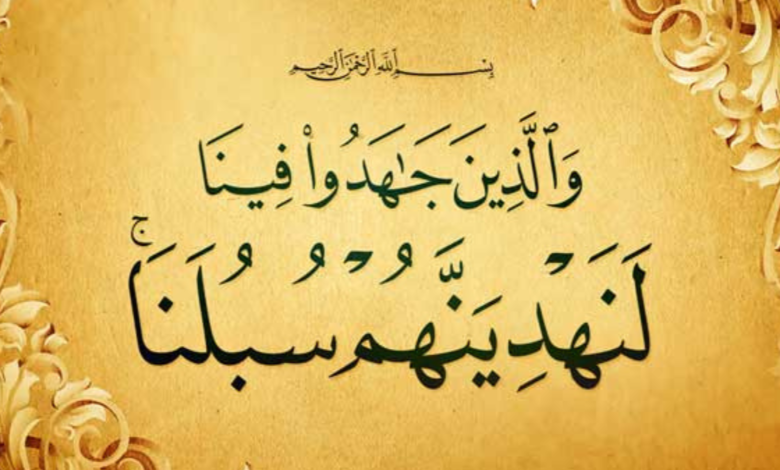 بِسْمِ ٱللَّهِ ٱلرَّحْمَٰنِ ٱلرَّحِيمِ
وَٱلَّذِينَ جَٰهَدُوا۟ فِينَا
لَنَهْدِيَنَّهُمْ سُبُلَنَا ۚ